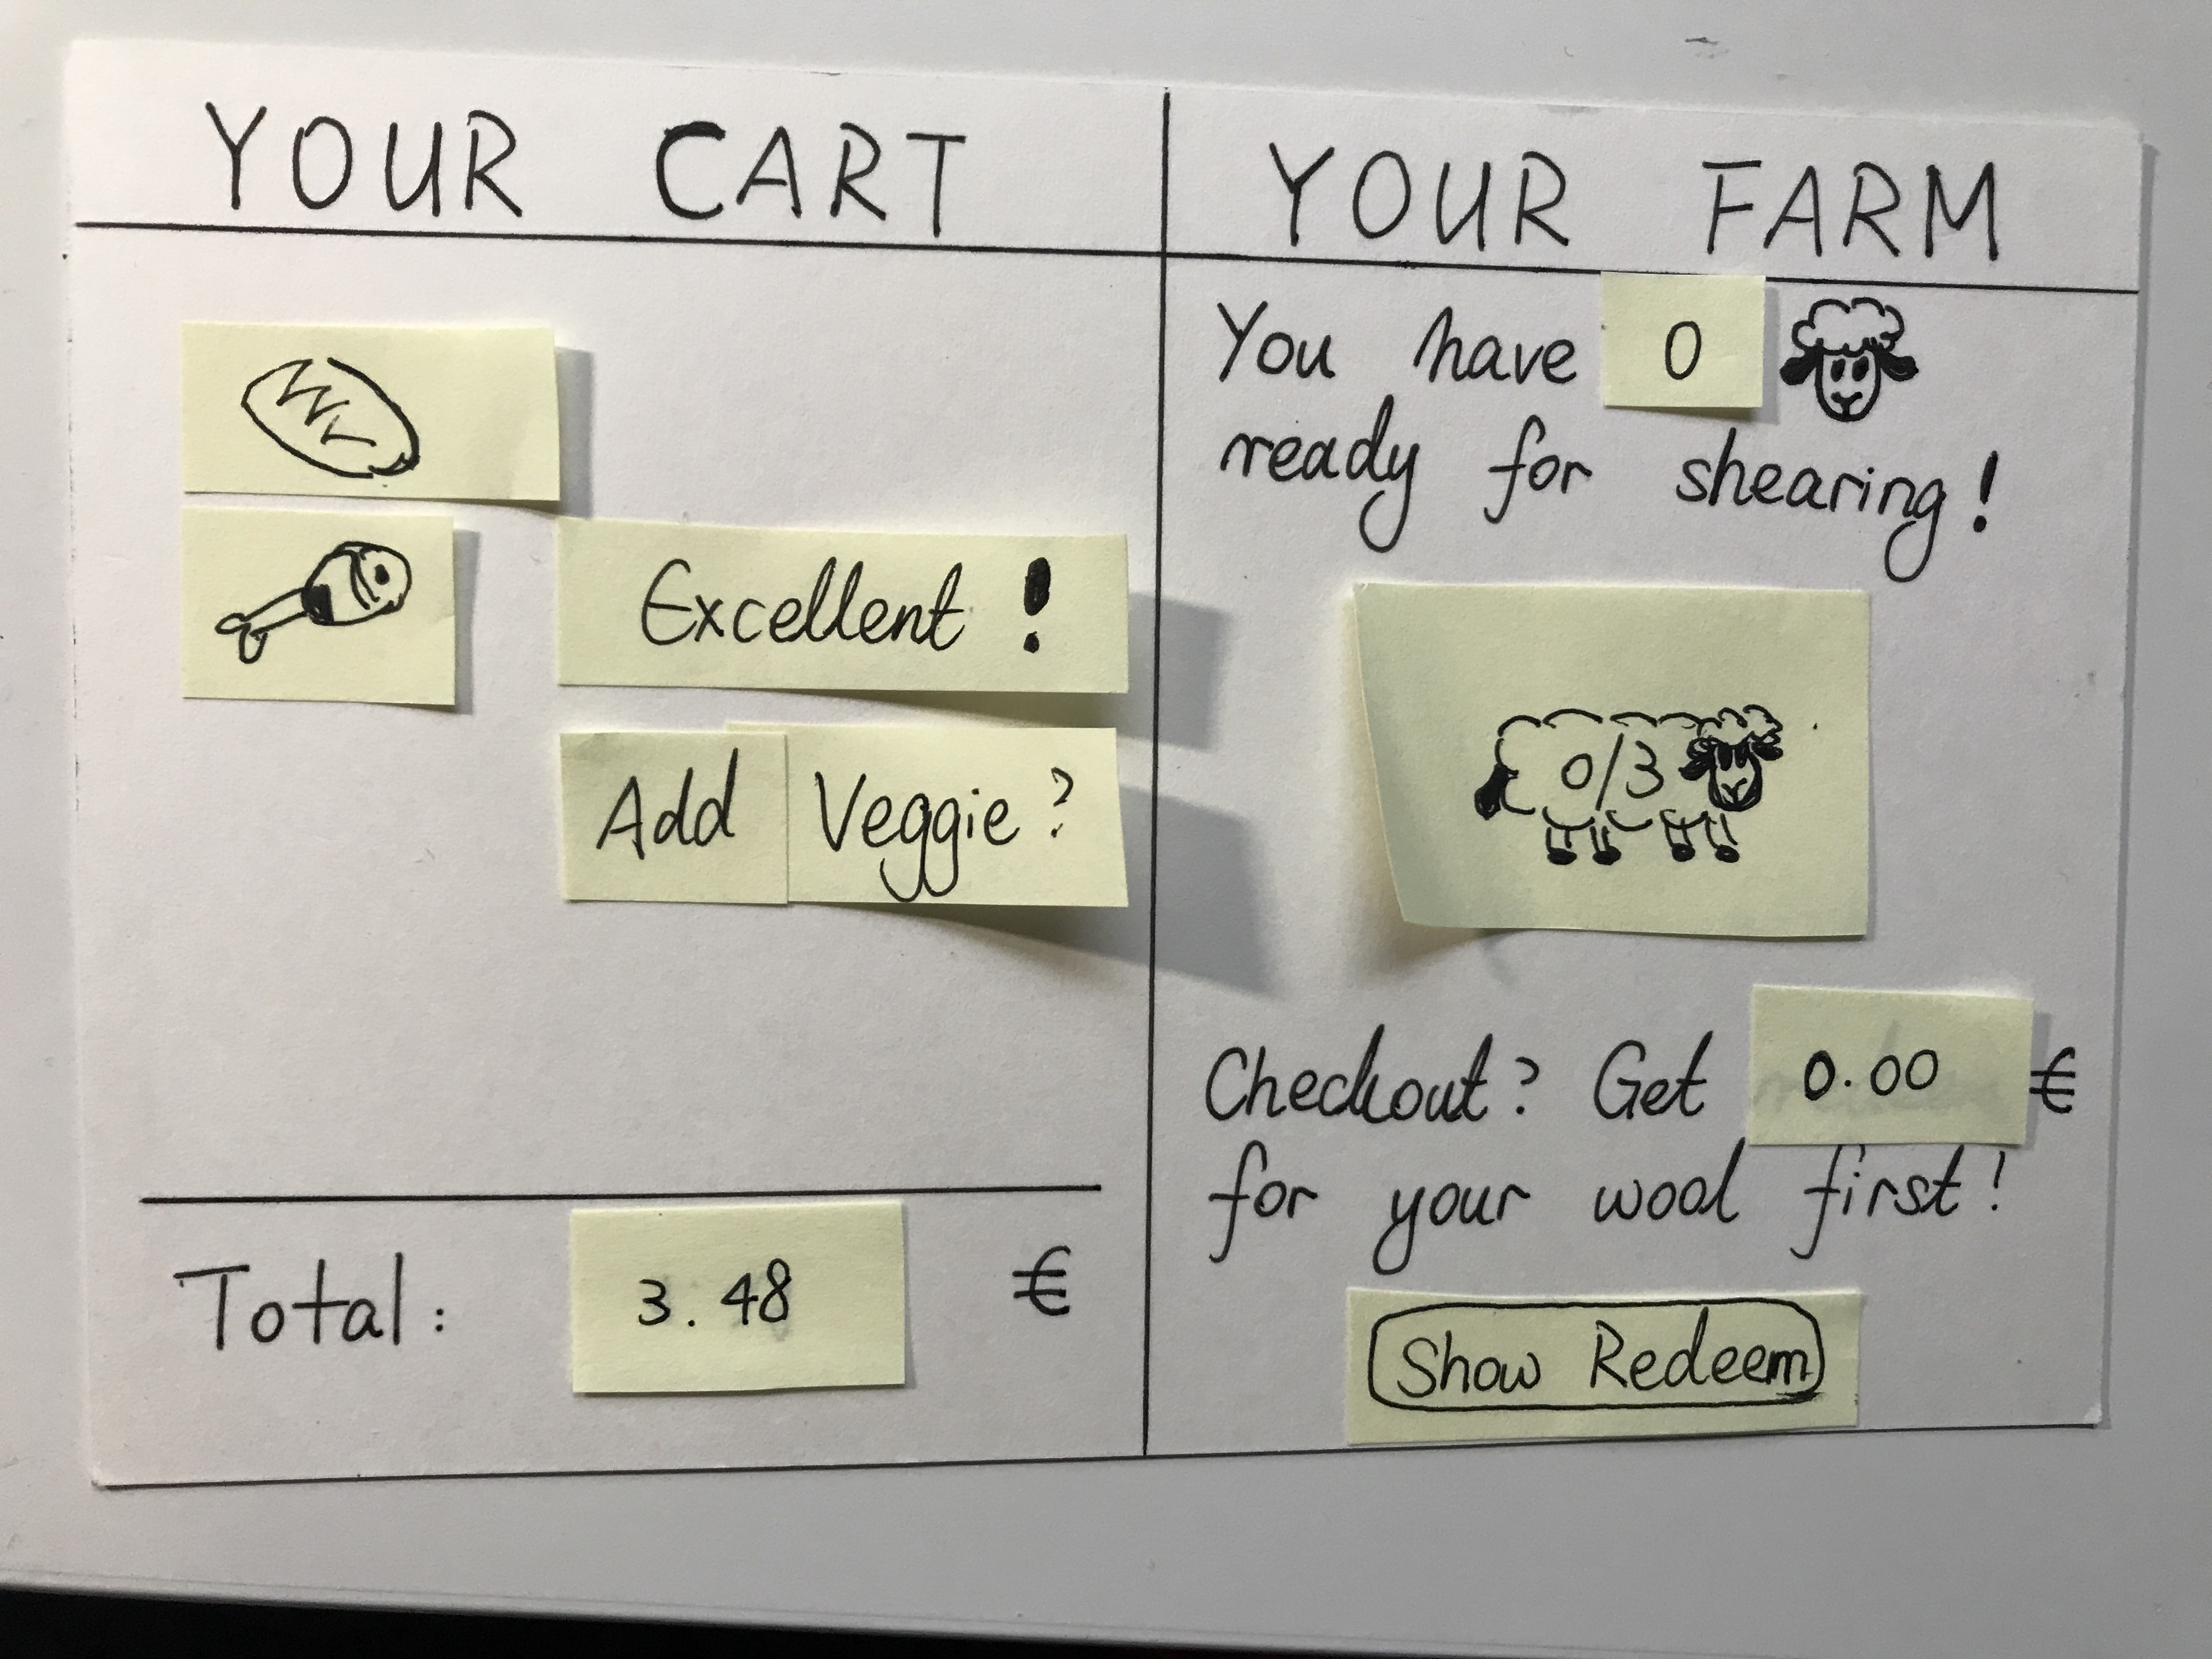 YOUR CART
Excellent!
Add Veggie?
Total: 3.48 €
YOUR FARM
You have 0
ready for shearing!
0/3
Checkout? Get 0.00 €
for your wool first!
Show Redeem